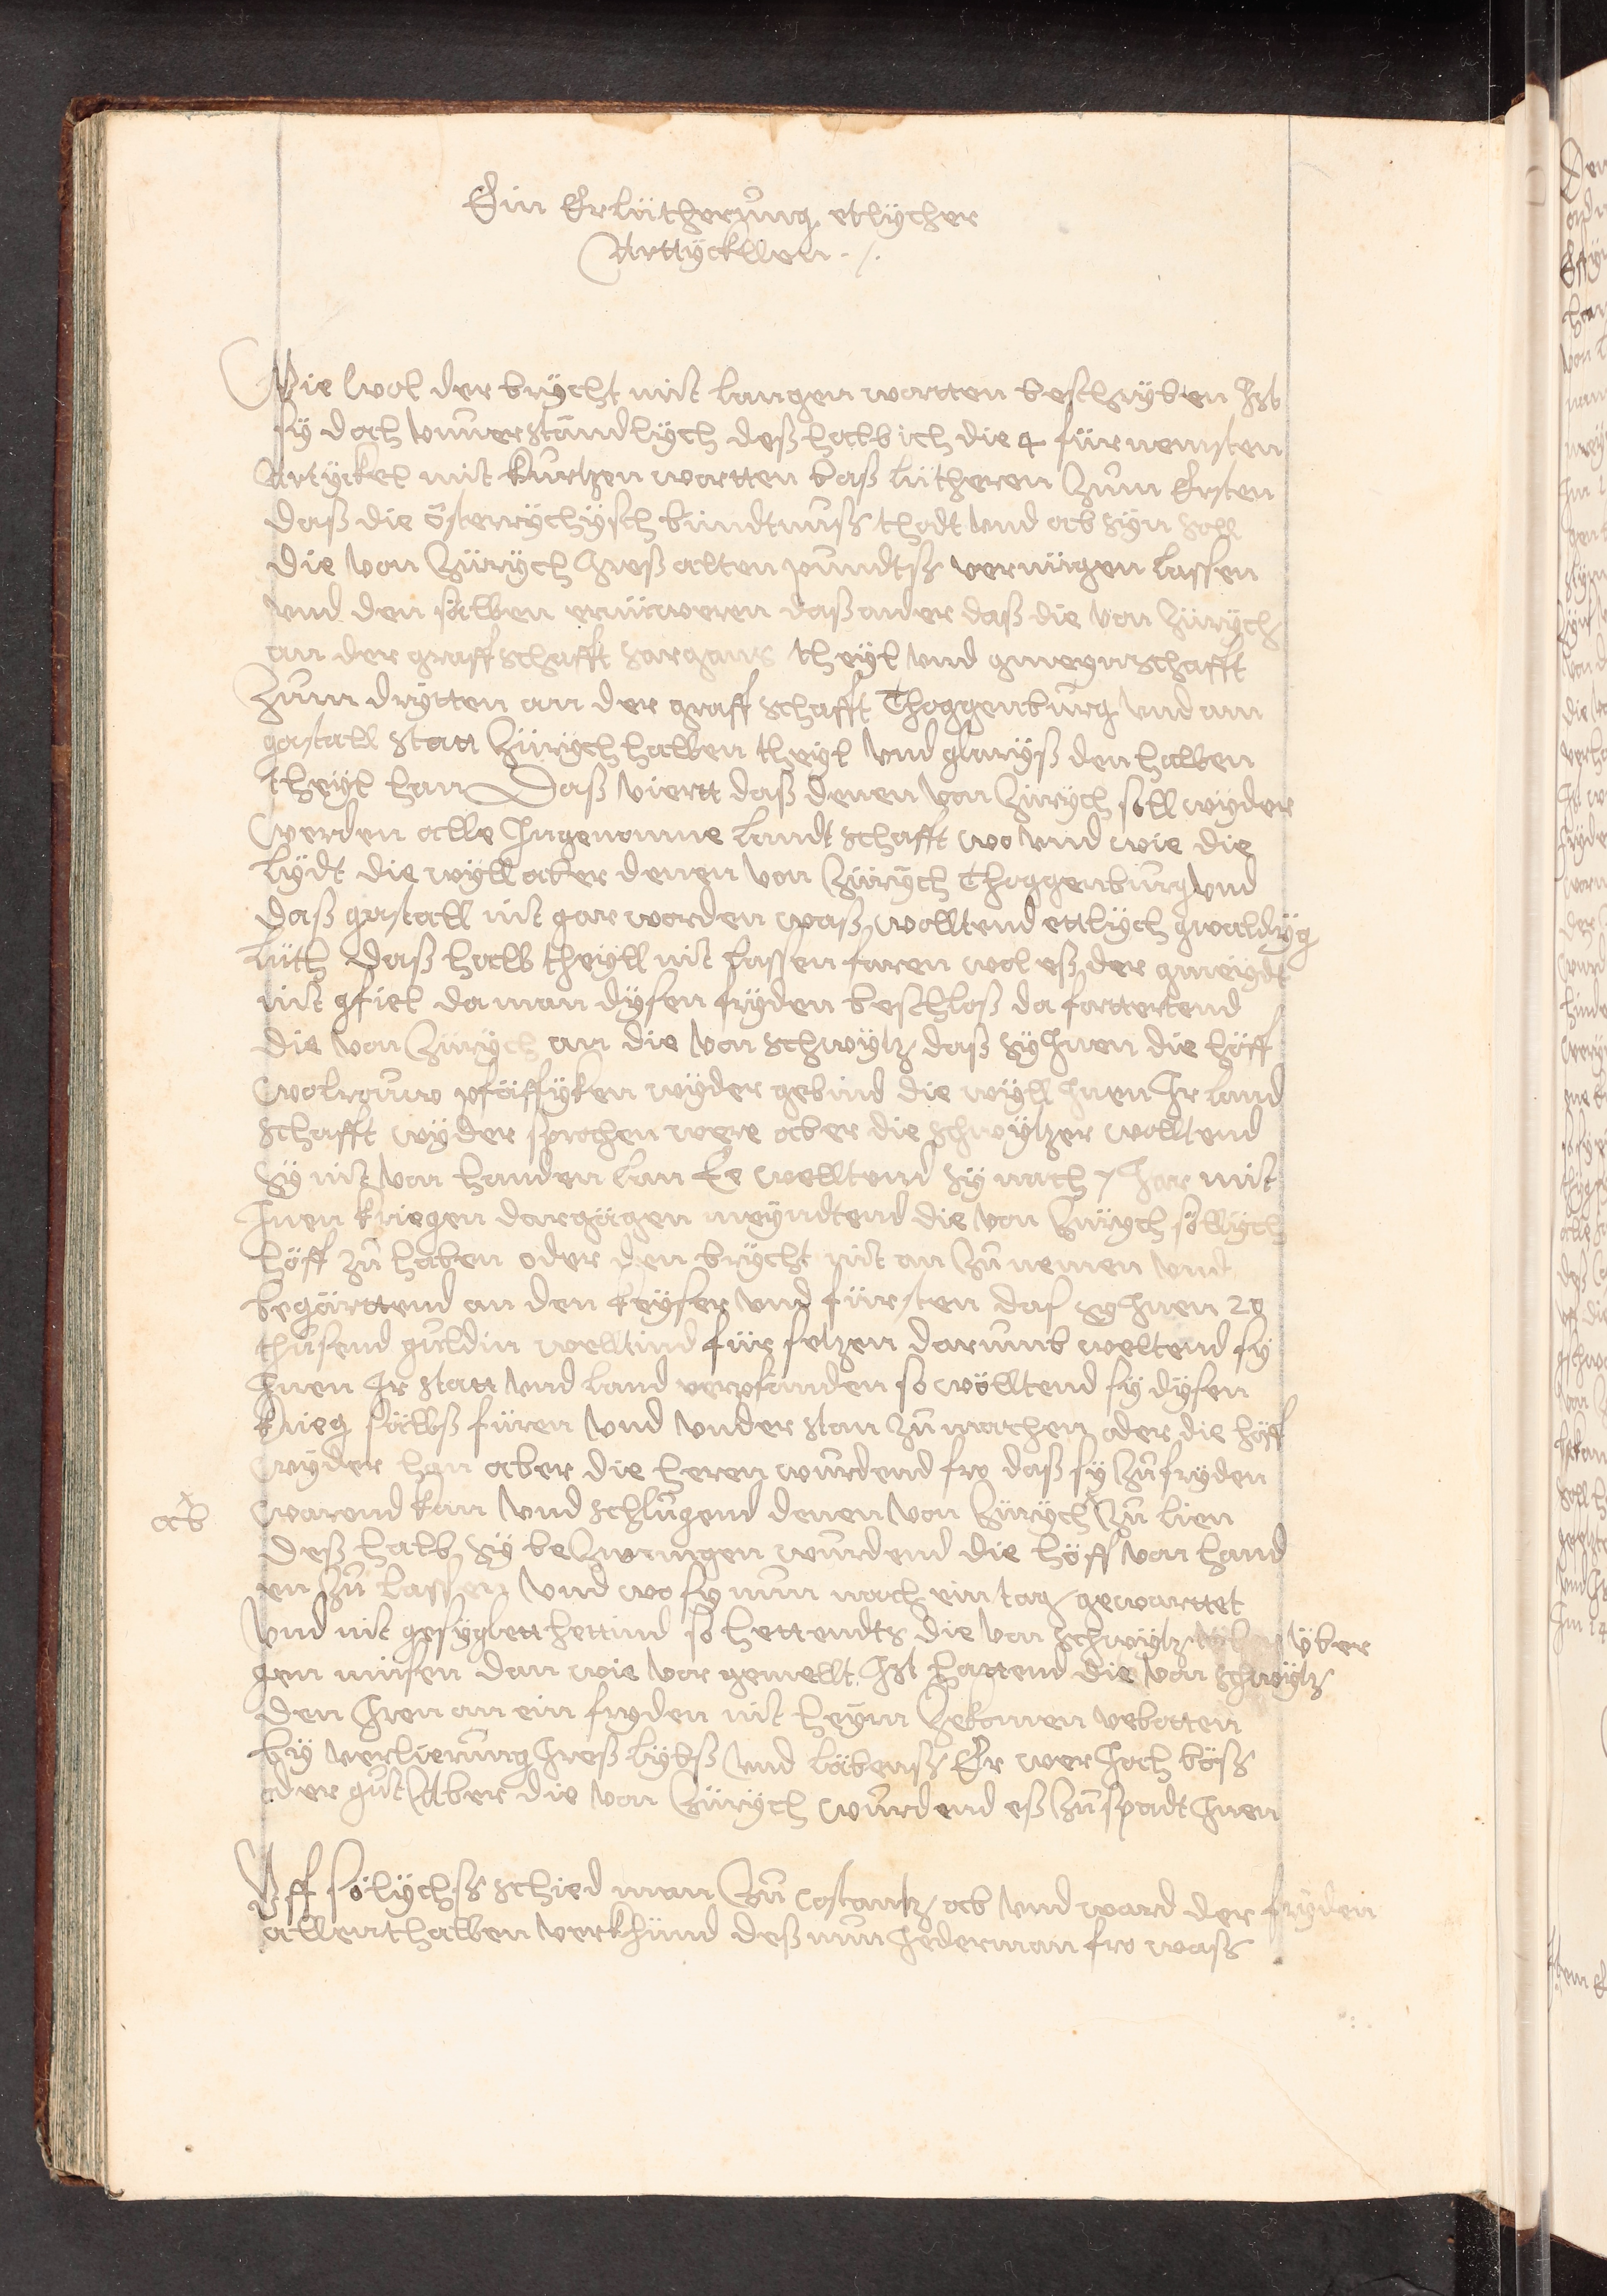 Ein Erlütherung etlycher
Arttyckllen ./.
Wie wol der brycht mit langen wortten beschryben Ist
sy doch unverständlych deß halb ich die 4 fürnemsten
Artyckel mit kurtzen wortten baß lütheren Zum Ersten
daß die österrychysch bündtnuß thodt und ab syn soll
die von Zürych Ireß alten pundtß vernügen lassen
und den sälben ernüweren daß ander daß die von Zürych
an der graffschafft sargans theyl und gmeynschafft
Zum drytten an der graffschafft Thoggenburg und am
gastall statt Zürych halben theyl und glaryß den halben
theyl han Daß viertt daß denen von Zürych soll wyder
werden alle Ingenomne landtschafft wo und wie die
lydt die wyll aber denen von Zürych Thoggenburg und
daß gastall nit gar worden waß wolltend ettlych gwaldyg
lüth daß halb theyll nit lassen faren wol eß der gmeyndt
nit gfiel da man dysen fryden beschloß da forttertend
die von Zürych an die von schwytz daß sy Inen die höff
wolrouw pfäffyken wyder gebind die wyll Inen Ir land
schafft wyder sprochen were aber die schwytzer wolltend
sy nit von handen lan Ee welltend sy noch 7 Jar mit
Inen kriegen dargägen meyndtend die von Zürych söllych
höff zu haben oder den brycht nit an Zu nemen und
begärttend an den keyser und fürsten das sy Inen 20
thusend guldin welltind für setzen darumb weltend sy
Inen Ir statt und land verpfänden so wölltend sy dysen
krieg sälbß füren und understan Zu machen oder die höff
wyder han aber die heren wurdend fro daß sy Zu fryden
ab
warend kan und schlugend denen von Zürych Zu lien
deß halb sy beZwungen wurdend die höff von hand
en Zu lassen und wo sy nun noch ein tag gewarttet
und nit gesyglett hettind so hettendts die von schwytz über
gen müsen dan wie vor gemellt Ist hattend die von schwytz
den Iren an ein fryden nit heym Zekomen vebotten
by verlierung Ireß lybß und läbenß Er wer Joch böß
oder gut Aber die von Zürych wurdend eß Zu spadt Innen
Uff sölychß schied man Zu costantz ab und ward der fryden
allenthalben verkhünd deß nun Jederman fro waß